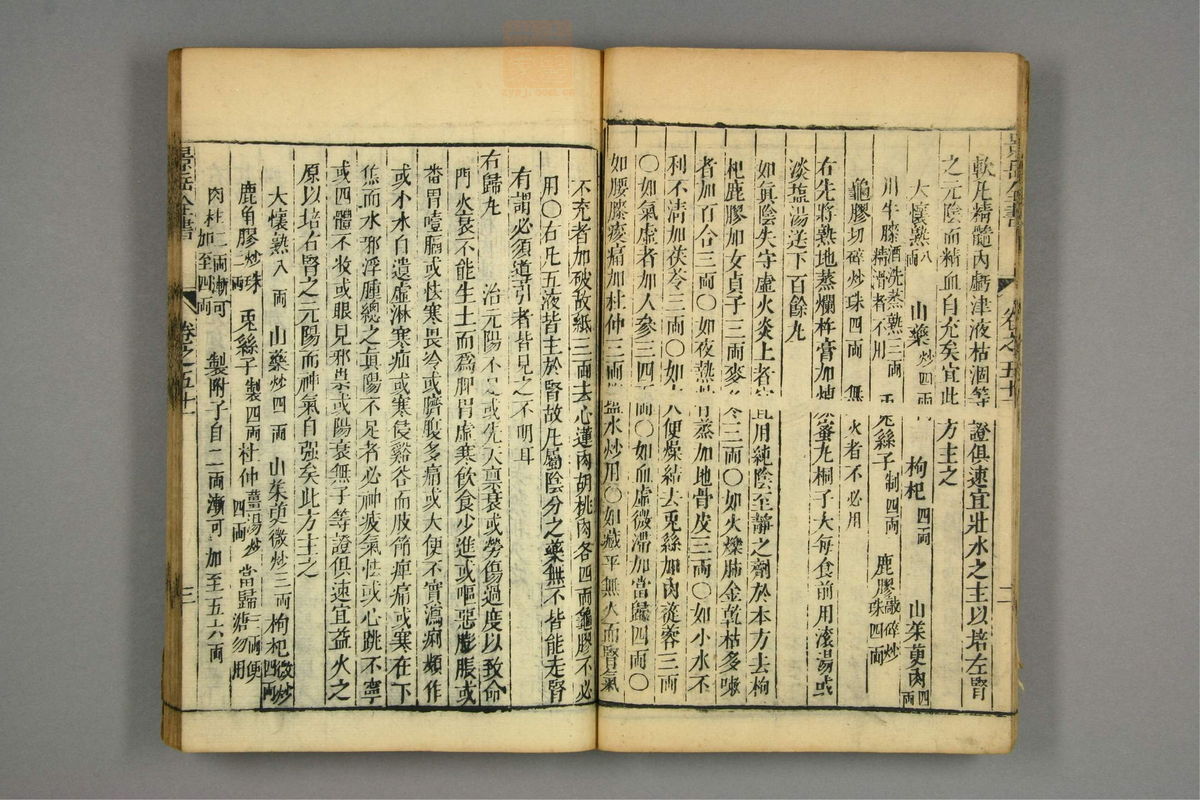 軟凡精髓內虧津液枯涸等證俱速宜壯水之主以培左腎
之元陰而精血自充矣宜此方主之
大懷熟八兩 山藥炒四兩 枸杞四兩 山茱萸肉四兩
川牛膝酒洗蒸熟三兩精滑者不用 兎絲子制四兩 鹿膠敲碎炒珠四兩
龜膠切碎炒珠四兩 無火者不必用
右先將熟地蒸爛杵膏加煉蜜丸桐子大每食前用滾湯或
淡塩湯送下百餘丸
如眞陰失守虛火炎上者宜用純陰至靜之劑於本方去枸
杞鹿膠加女貞子三兩麥冬三兩〇如火爍肺金乾枯多嗽
者加百合三兩〇如夜熱骨蒸加地骨皮三兩〇如小水不
利不清加茯苓三兩〇如大便燥結去兎絲加肉蓯蓉三兩
〇如氣虛者加人參三四兩〇如血虛微滯加當歸四兩〇
如腰膝痠痛加杜仲三兩塩水炒用〇如藏平無火而腎氣
不充者加破故紙三兩去心蓮肉胡桃肉各四兩龜膠不必
用〇右凡五液皆主於腎故凡屬陰分之藥無不皆能走腎
有謂必須道引者皆見之不明耳
右歸丸 治元陽不足或先天稟衰或勞傷過度以致命
門火衰不能生土而爲脾胃虛寒飲食少進或嘔惡膨脹或
番胃噎膈或怯寒畏冷或臍腹多痛或大便不實瀉痢頻作
或小水自遺虛淋寒疝或寒侵谿谷而肢節痺痛或寒在下
焦而水邪浮腫總之眞陽不足者必神疲氣怯或心跳不寧
或四體不收或眼見邪祟或陽衰無子等證俱速宜益火之
原以培右腎之元陽而神氣自强矣此方主之
大懷熟八兩 山藥炒四兩 山茱萸微炒三兩 枸杞微炒四兩
鹿角膠炒珠四兩 兎絲子製四兩 杜仲薑湯炒四兩 當歸三兩便溏勿用
肉桂二兩漸可加至四兩 製附子自二兩漸可加至五六兩
景岳全書 卷之五十一 二
景岳全書 卷之五十一 三